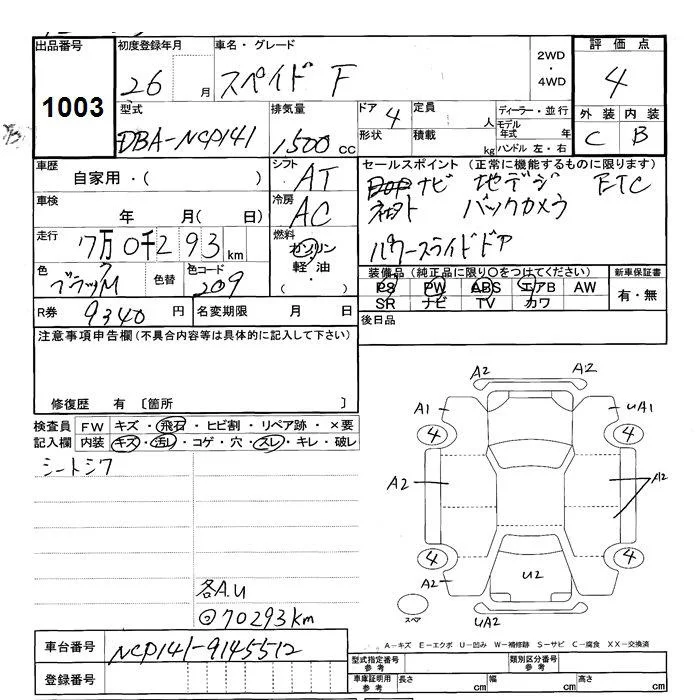 出品番号
1003
初度登録年月
26 月
車名・グレード
スペイド F
2WD・4WD
評価点
4
外装 内装
C B
型式
DBA-NCP141
排気量
1500 cc
ドア 4
形状
定員 人
積載 kg
ディーラー・並行
モデル年式 年
ハンドル 左・右
車歴
自家用・( )
車検 年 月( 日)
走行 7万0千293 km
色 ブラックM
色替
色コード 209
シフト AT
冷房 AC
燃料 ガソリン・軽油・( )
セールスポイント (正常に機能するものに限ります)
ナビ 地デジ ETC
バックカメラ
パワースライドドア
装備品 (純正品に限り○をつけてください)
PS PW ABS エアB AW
SR ナビ TV カワ
新車保証書
有・無
後日品
R券 9340 円
名変期限 月 日
注意事項申告欄 (不具合内容等は具体的に記入して下さい)
修復歴 有 〔箇所 〕
検査員記入欄
FW キズ・飛石・ヒビ割・リペア跡・×要
内装 キズ・汚レ・コゲ・穴・スレ・キレ・破レ
シートシワ
各A.U
70293km
A2 A2
A1 UA1
4 4
A2 A2
4 4
A2 U2
UA2
スペア
A-キズ E-エクボ U-凹み W-補修跡 S-サビ C-腐食 XX-交換済
車台番号 NCP141-9145512
登録番号
型式指定番号 参考
類別区分番号 参考
車庫証明用 参考
長さ cm 幅 cm 高さ cm